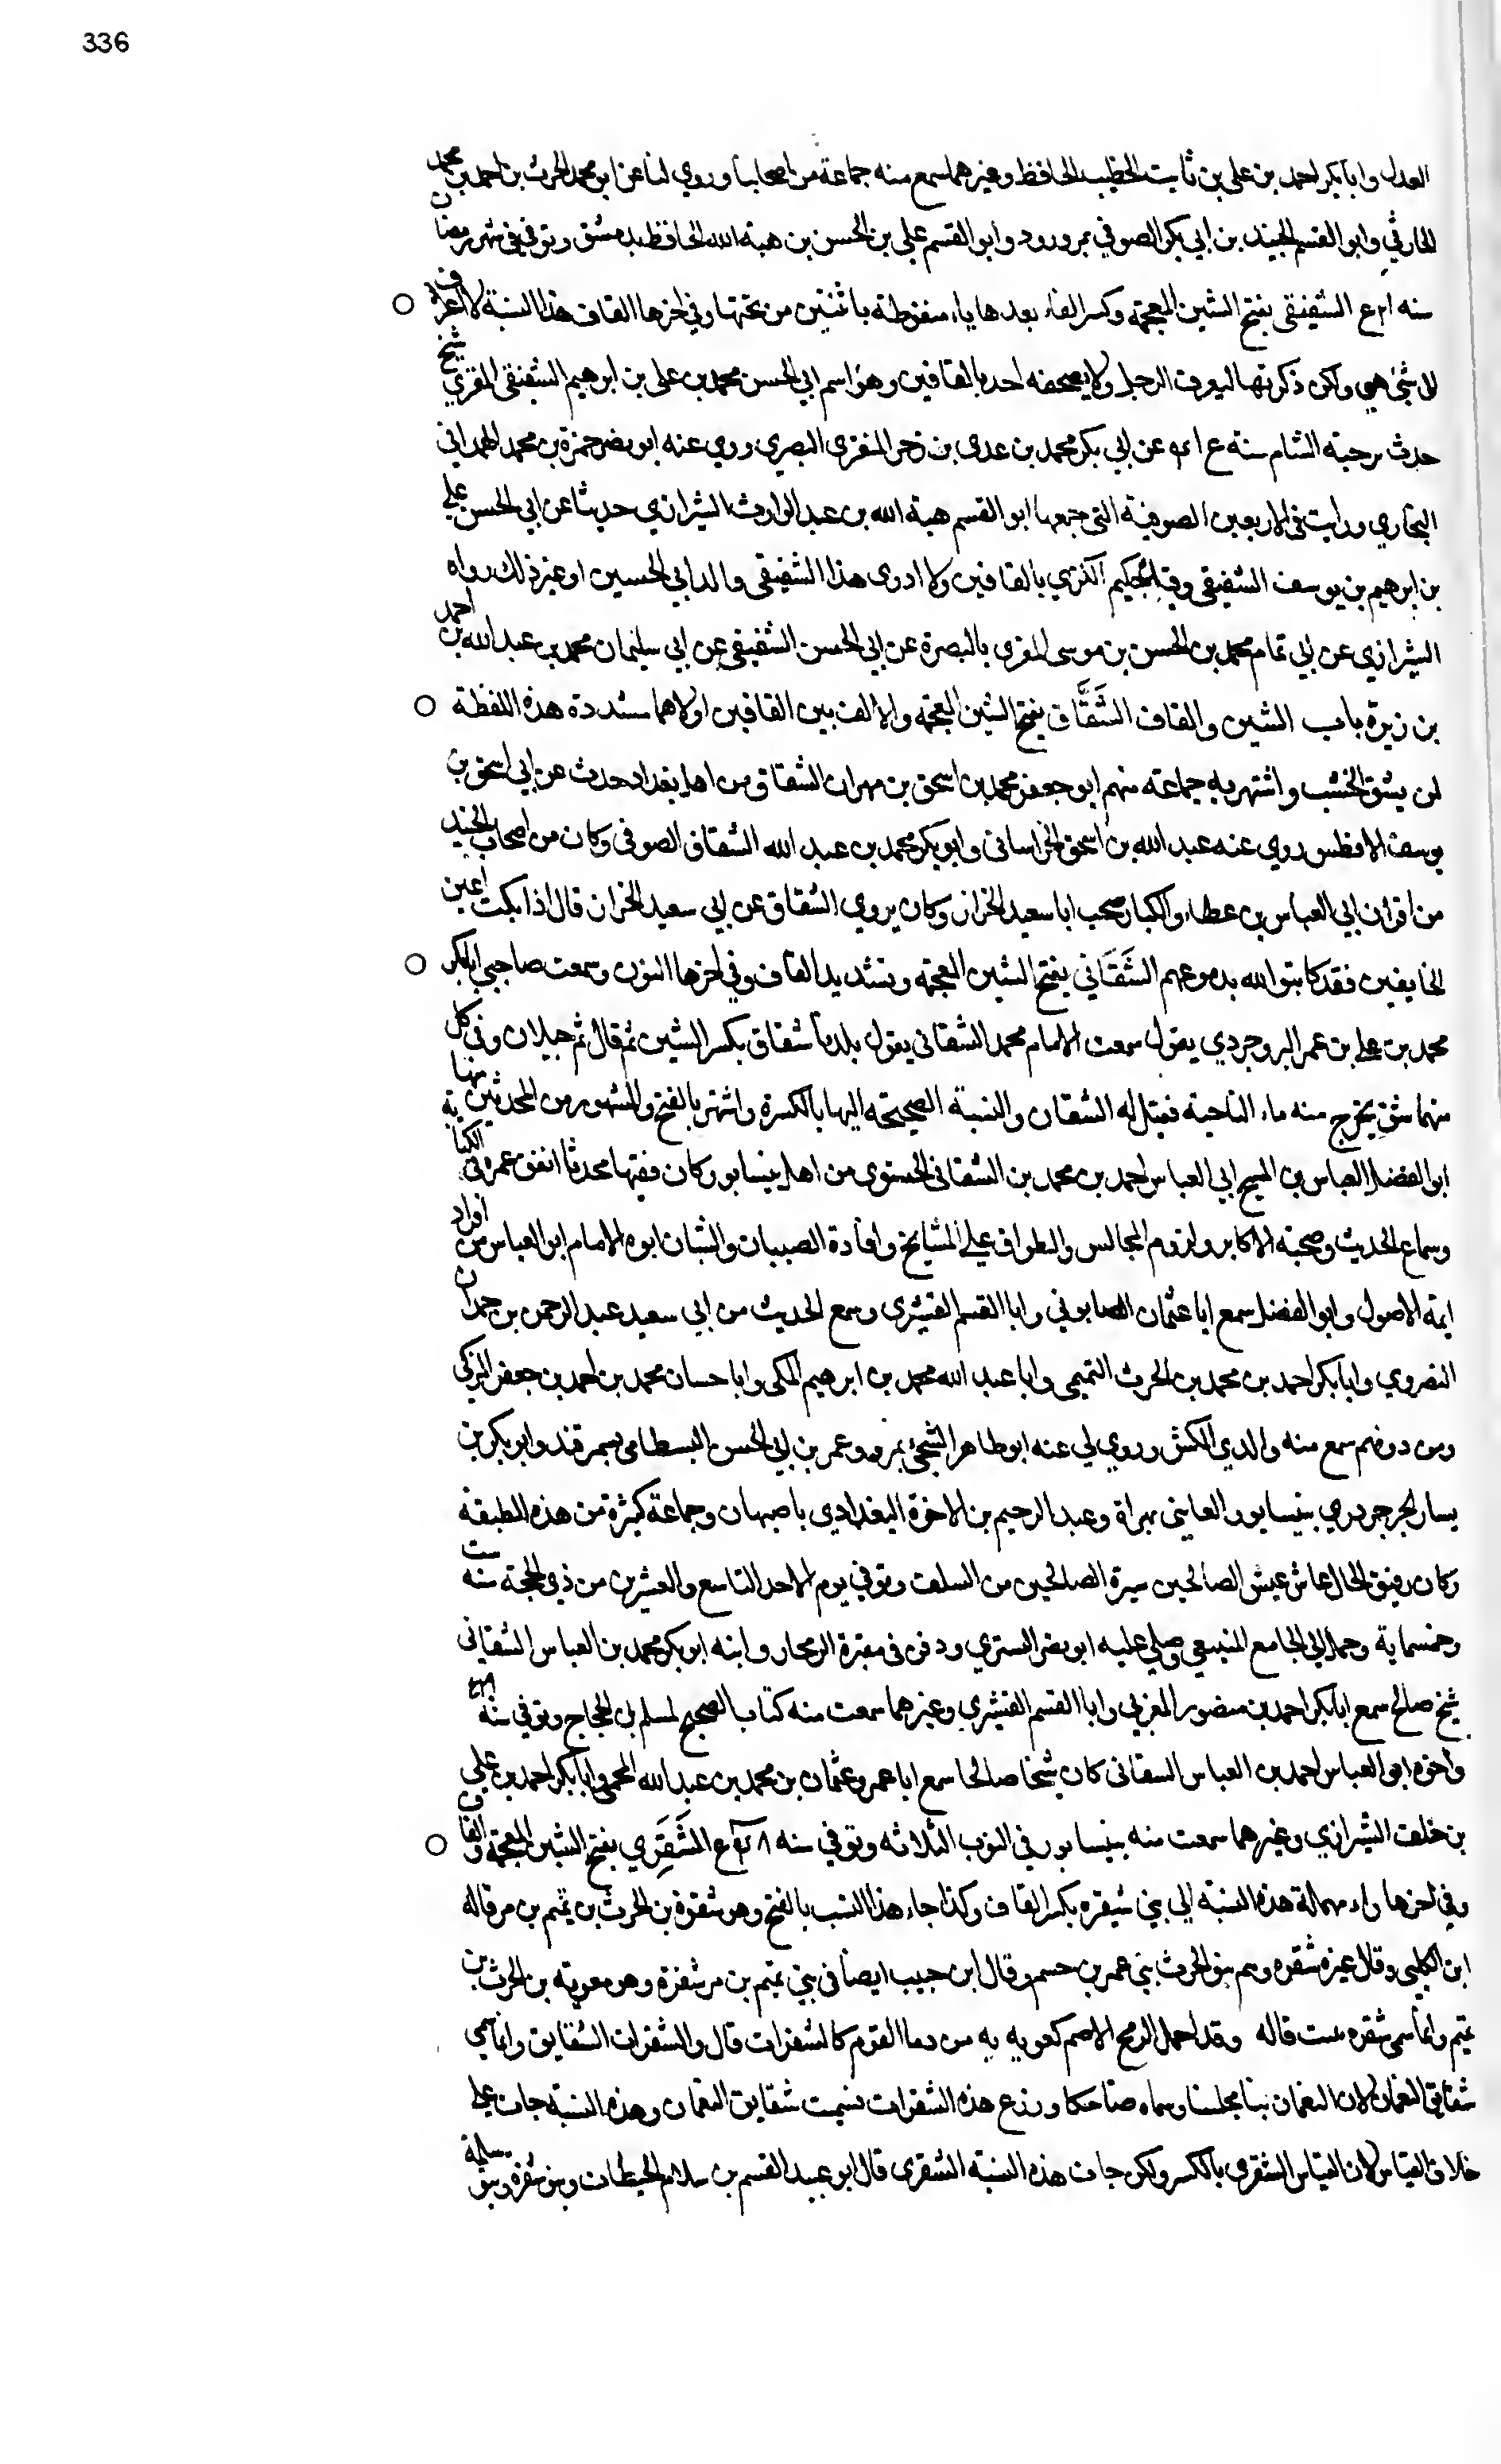 336
العدل وابابكر احمد بن علي بن ثابت الخطيب الحافظ وغيرهما سمع منه جماعة من اصحابنا وروي لنا عن ابو محمد الحرث بن احمد بن محمد
الحارثي وابو القسم الجنيد بن ابي بكر الصوفي بمرورود وابو القسم علي بن الحسن بن هبة الله الحافظ بدمشق وتوفي في شهر رمضان
سنه الشفيقي بفتح الشين المعجمة وكسر الفاء بعدها ياء منقوطة باثنتين من تحتها وفي اخرها القاف هذا النسبة لا اعرف
لاى شئ هي ولكن ذكرتها ليعرف الرجل ولا يصحفه احد بالقافين وهو اسم ابي الحسن محمد بن علي بن ابرهيم الشفيقي المقري شيخ
حدث برحبة الشام سنة عن ابي بكر محمد بن عدى بن زحر المنقري البصري وروي عنه ابو نصر حمزة بن محمد الهمداني
البخاري ورايت في الاربعين الصوفية التي جمعها ابو القسم هبة الله بن عبد الوارث الشيرازي حديثا عن ابي الحسن علي
بن ابرهيم بن يوسف الشقيقي بالقافين ولا ادرى هذا الشفيقي والد ابي الحسين او غير ذلك رواه
الشيرازي عن ابي تمام محمد بن الحسن بن موسى المقري بالبصرة عن ابي الحسن الشفيقي عن ابي سليمان محمد بن عبد الله بن احمد
بن زبرة باب الشين والقاف الشَّقَّاق بفتح الشين المعجمة والالف بين القافين اولاهما مشددة هذه اللفظة
لمن يشق الخشب واشتهر به جماعة منهم ابو جعفر محمد بن اسحق بن مهران الشقاق من اهل بغداد حدث عن ابي اسحق بن
يوسف الافطس روي عنه عبد الله بن اسحق الخراساني وابو بكر محمد بن عبد الله الشقاق الصوفي وكان من اصحاب الجنيد
من اقران ابي العباس بن عطاء والكبار صحب ابا سعيد الخراز وكان يروي الشقاق عن ابي سعيد الخراز قال اذا بكت اعين
الخايفين فقد كاتبوا الله بدموعهم الشَّقَّاني بفتح الشين المعجمة وتشديد القاف وفي اخرها النون وسمعت صاحبي ابا بكر
محمد بن علي بن عمر البروجردي يقول سمعت الامام محمد الشقاني يقول بلدنا شقاق بكسر الشين ثم قال ثم جبلان وفي كل
منهما شق يخرج منه ماء الناحية فقيل له الشقان والنسبة الصحيحة اليها بالكسرة واشتهر بالفتح والمشهور من المحدثين منها
ابو الفضل العباس بن ابي العباس احمد بن محمد بن الشقاني الحسنوي من اهل نيسابور وكان فقيها محدثا انفق عمره في الكتابة
وسماع الحديث وصحبة الاكابر ولزوم المجالس والطواف علي المشايخ وافادة الصبيان والشبان ابوه الامام ابو العباس من افراد
ايمة الاصول وابو الفضل سمع ابا عثمان الصابوني وابا القسم القشيري وسمع الحديث من ابي سعيد عبد الرحمن بن حمدان
النصروي وابابكر احمد بن محمد بن الحرث التميمي وابا عبد الله محمد بن ابرهيم المكي وابا حسان محمد بن احمد بن جعفر المزكي
ومن دونهم سمع منه والدي الكثير وروي لي عنه ابو طاهر السنجي بمرو وعمر بن ابي الحسن البسطامي بسمرقند وابو بكر بن
يسار الخرجردي بنيسابور بهراة وعبد الرحيم بن الاخوة البغدادي باصبهان وجماعة كثيرة من هذه الطبقة
وكان رقيق الحال عاش عيش الصالحين سيرة الصالحين من السلف وتوفي يوم الاحد التاسع والعشرين من ذي الحجة سنه ست
وخمسماية وحمل الي الجامع المنيعي وصلي عليه ابو نصر ودفن في مقبرة وابنه ابو بكر محمد بن العباس الشقاني
شيخ صالح سمع ابابكر احمد بن منصور المغربي وابا القسم القشيري وغيرهما سمعت منه كتاب الصحيح لمسلم بن الحجاج وتوفي سنة
واخوه ابو العباس احمد بن العباس الشقاني كان شيخا صالحا سمع ابا عمرو عثمان بن محمد بن عبد الله المحمي وابابكر احمد بن علي
بن خلف الشيرازي وغيرهما سمعت منه بنيسابور في النوب الثلاثه وتوفي سنه الشَّقَري بفتح الشين المعجمة والقاف
وفي اخرها راء مهملة هذه النسبة الي بني شقره بكسر القاف وكذا جاء هذا النسب بالفتح وهو شقرة بن الحرث بن تميم بن مر قاله
ابن الكلبي وقال غيره شقره وهم بنو الحرث بني عمر بن وقال ابن حبيب ايضا في بني تميم بن مر شقرة وهو معوية بن الحرث بن
تميم وانما سمى شقره قاله وقد احمل الرمح الاصم كعوبه به من دما القوم كالشقرات قال والشقرات الشقايق وانما سمي
شقايق النعمان لان النعمان بنا مجلسا وسماه ضاحكا وزرع هذه الشقرات فسميت شقايق النعمان وهذه النسبة جات علي
خلاف القياس لان القياس الشقري بالكسر ولكن جات هذه النسبة الشقري قال ابو عبيد القسم بن سلام الحبطات وبنو شقره وبنو سلمة